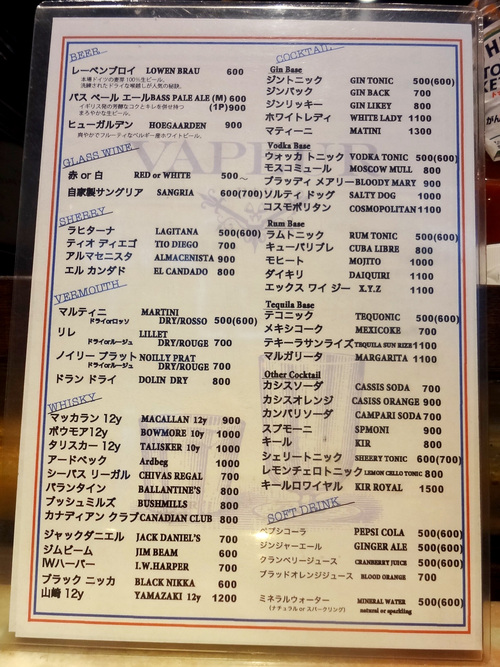 BEER
レーベンブロイ LOWEN BRAU 600
本場ドイツの麦芽100%生ビール。
洗練されたドライな喉越しが人気の秘密。
バス ペール エール BASS PALE ALE (M) 600
イギリス発の芳醇なコクとキレを併せ持つ (1P)900
まろやかな生ビール。
ヒューガルデン HOEGAARDEN 900
爽やかでフルーティなベルギー産ホワイトビール。
GLASS WINE
赤 or 白 RED or WHITE 500～
自家製サングリア SANGRIA 600(700)
SHERRY
ラヒターナ LAGITANA 500(600)
ティオ ディエゴ TIO DIEGO 700
アルマセニスタ ALMACENISTA 900
エル カンダド EL CANDADO 800
VERMOUTH
マルティニ MARTINI
ドライorロッソ DRY/ROSSO 500(600)
リレ LILLET
ドライorルージュ DRY/ROUGE 700
ノイリー プラット NOILLY PRAT
ドライorルージュ DRY/ROUGE 700
ドラン ドライ DOLIN DRY 800
WHISKY
マッカラン 12y MACALLAN 12y 900
ボウモア12y BOWMORE 10y 1000
タリスカー 12y TALISKER 10y 1000
アードベック Ardbeg 1000
シーバス リーガル CHIVAS REGAL 700
バランタイン BALLANTINE'S 800
ブッシュミルズ BUSHMILLS 800
カナディアン クラブ CANADIAN CLUB 800
ジャックダニエル JACK DANIEL'S 700
ジムビーム JIM BEAM 600
IWハーパー I.W.HARPER 700
ブラック ニッカ BLACK NIKKA 600
山崎 12y YAMAZAKI 12y 1200
COCKTAIL
Gin Base
ジントニック GIN TONIC 500(600)
ジンバック GIN BACK 700
ジンリッキー GIN LIKEY 800
ホワイトレディ WHITE LADY 1100
マティーニ MATINI 1300
Vodka Base
ウォッカ トニック VODKA TONIC 500(600)
モスコミュール MOSCOW MULL 800
ブラッディ メアリー BLOODY MARY 900
ソルティ ドッグ SALTY DOG 1000
コスモポリタン COSMOPOLITAN 1100
Rum Base
ラムトニック RUM TONIC 500(600)
キューバリブレ CUBA LIBRE 800
モヒート MOJITO 1000
ダイキリ DAIQUIRI 1100
エックス ワイ ジー X.Y.Z 1100
Tequila Base
テコニック TEQUONIC 500(600)
メキシコーク MEXICOKE 700
テキーラサンライズ TEQUILA SUN RIZE 1100
マルガリータ MARGARITA 1100
Other Cocktail
カシスソーダ CASSIS SODA 700
カシスオレンジ CASISS ORANGE 900
カンパリソーダ CAMPARI SODA 700
スプモーニ SPMONI 900
キール KIR 800
シェリートニック SHEERY TONIC 600(700)
レモンチェロトニック LEMON CELLO TONIC 800
キールロワイヤル KIR ROYAL 1500
SOFT DRINK
ペプシコーラ PEPSI COLA 500(600)
ジンジャーエール GINGER ALE 500(600)
クランベリージュース CRANBERRY JUICE 500(600)
ブラッドオレンジジュース BLOOD ORANGE 700
ミネラルウォーター MINERAL WATER 500(600)
(ナチュラル or スパークリング) natural or sparkling